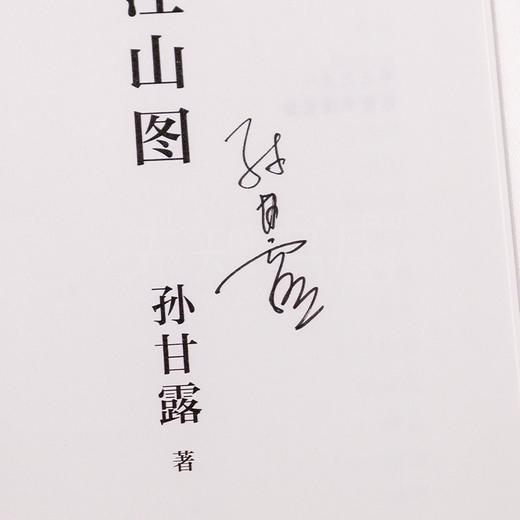 江山图
孙甘露
孙甘露 著